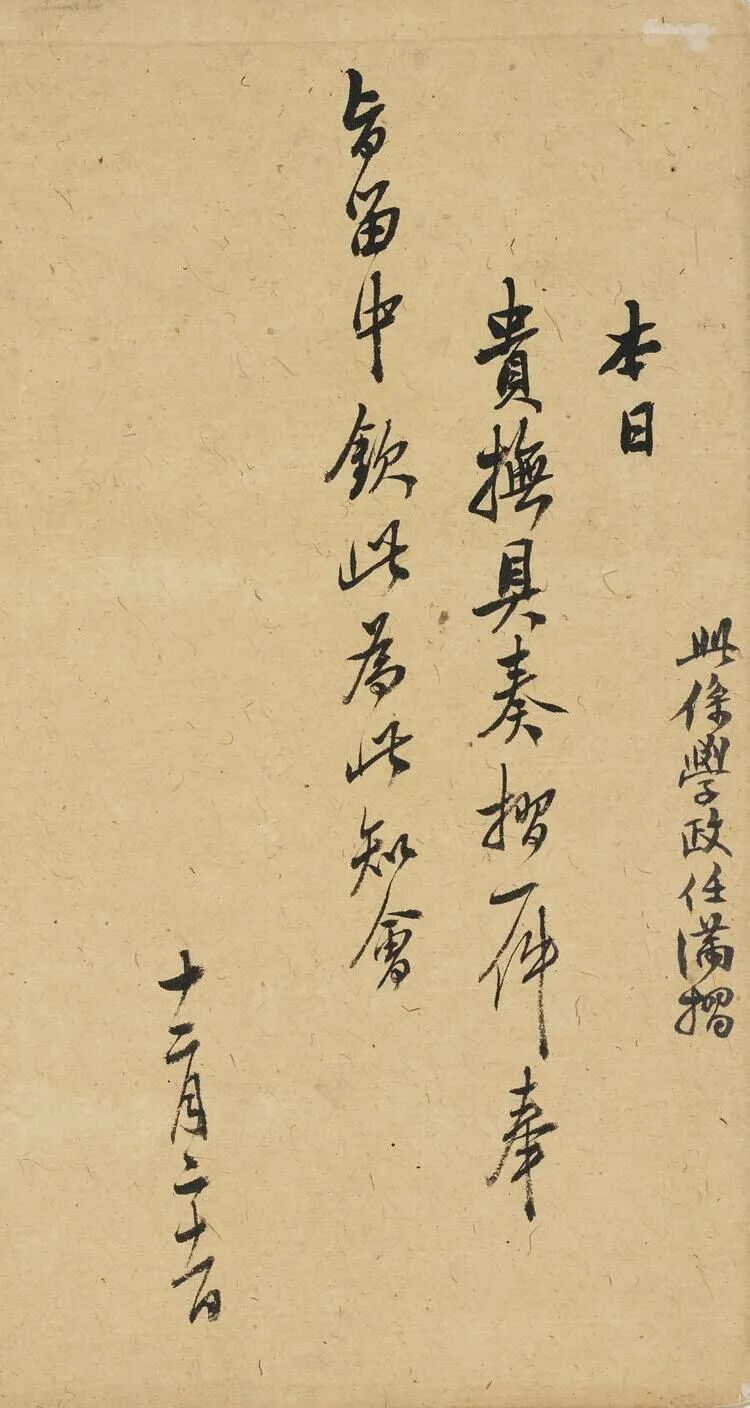 此係學政任滿摺
本日
貴撫具奏摺一件奉
旨留中欽此為此知會
十二月二十一日